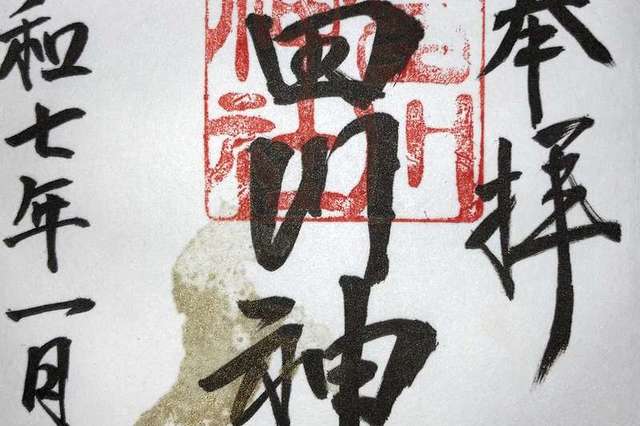 奉拝
川神
和七年一月